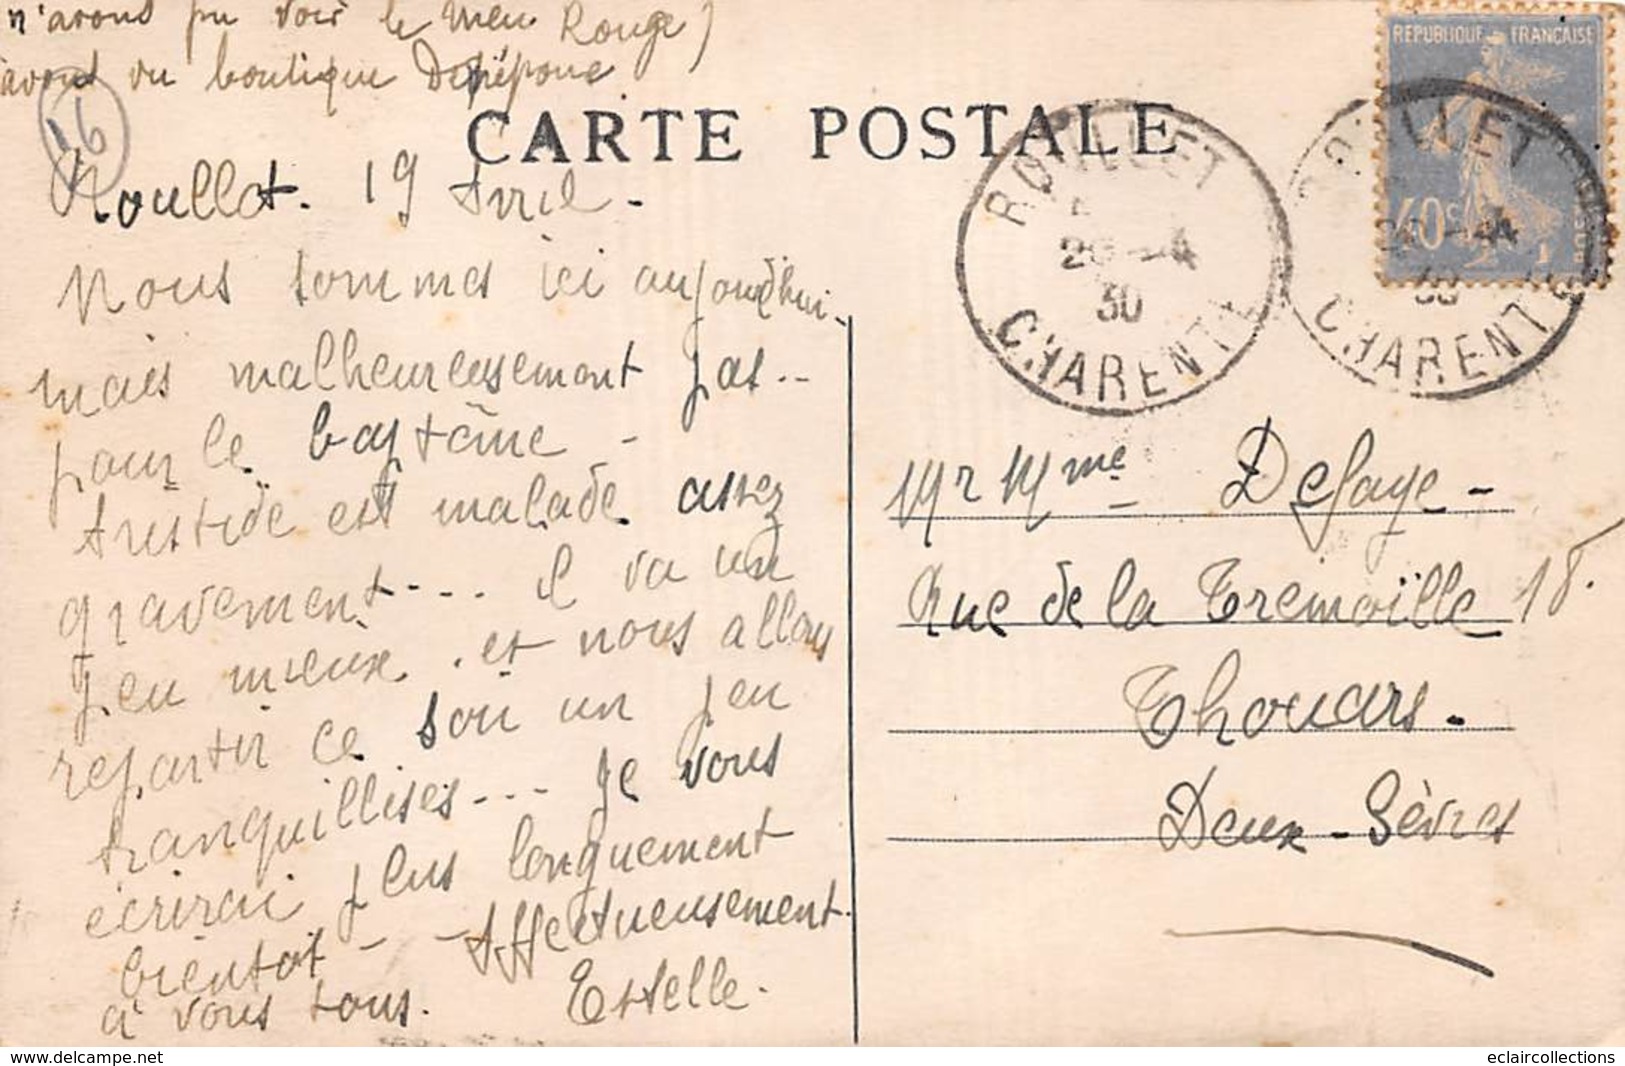 n'avons pu voir le Meu Rouge)
avons vu boutique
16
CARTE POSTALE
REPUBLIQUE FRANÇAISE
40c
ROULLET
20 -4
30
CHARENTE
ROULLET
-4
30
CHARENTE
Roullet. 19 Avril.
Nous sommes ici aujourd'hui-
mais malheureusement pas..
pour le baptême -
Aristide est malade assez
gravement.... il va un
peu mieux. et nous allons
repartir ce soir un peu
tranquillisés... Je vous
écrirai plus longuement
bientôt - - Affectueusement.
à vous tous. Estelle.
Mr Mme Defaye-
Rue de la Tremoïlle 18.
Thouars.
Deux-Sèvres
www.delcampe.net
eclaircollections